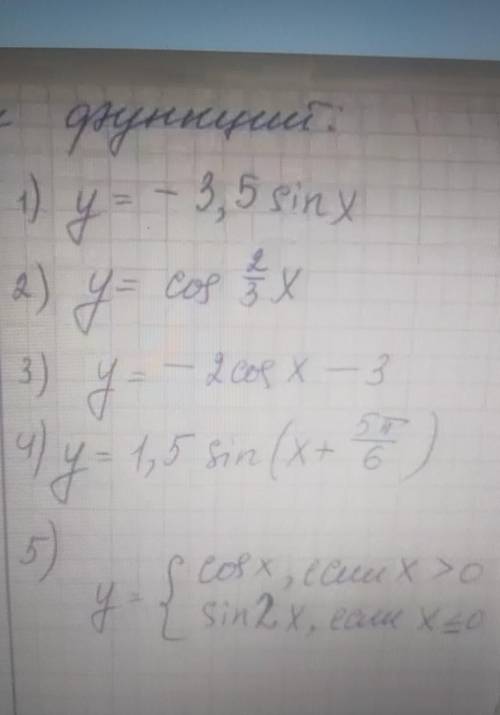 функций:
1) y = - 3,5 sin x
2) y = cos 2/3 x
3) y = - 2cos x - 3
4) y = 1,5 sin (x + 5π/6)
5) y = { cos x, если x > 0
sin 2x, если x ≤ 0